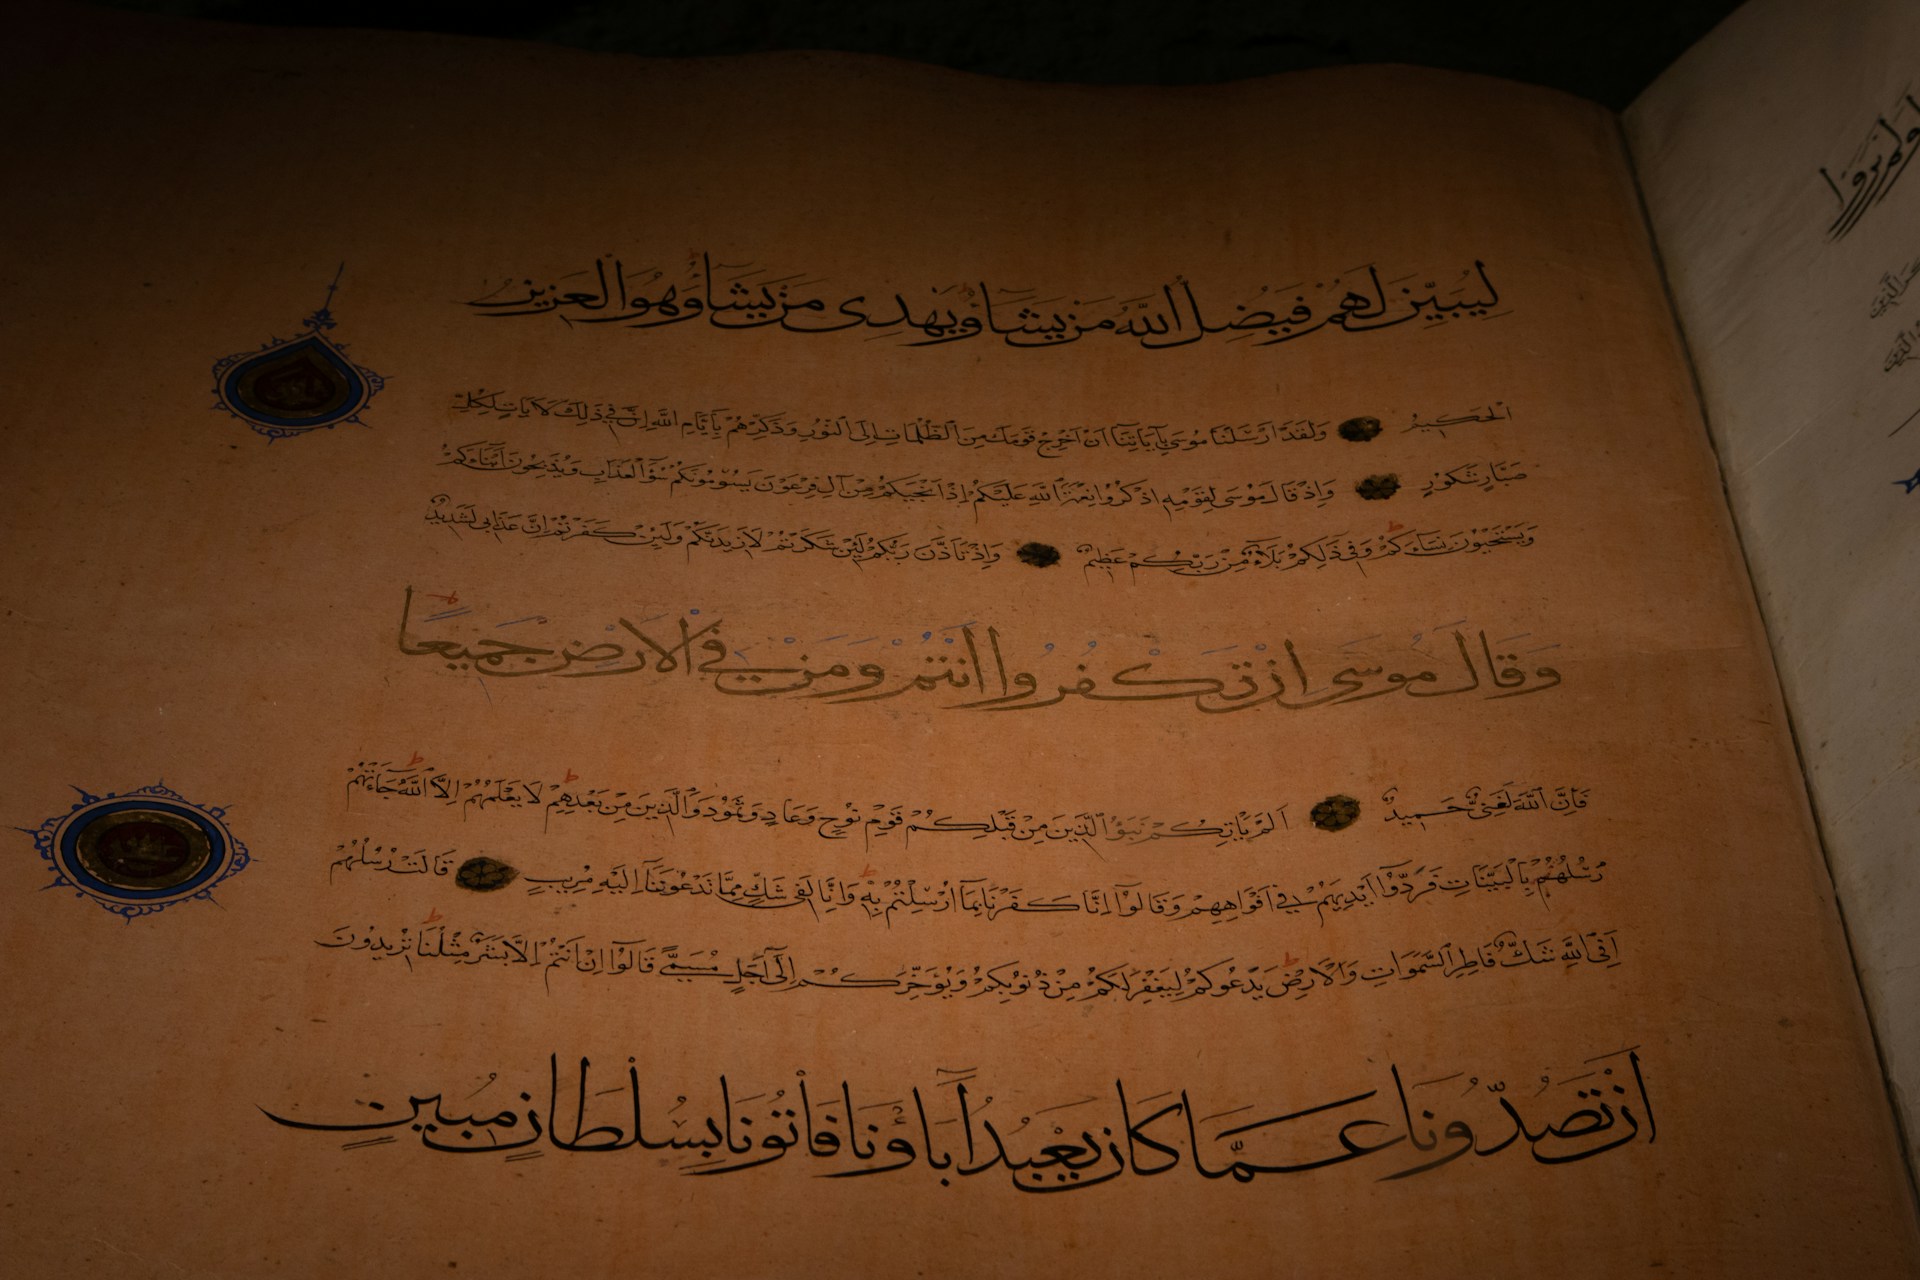 لِيُبَيِّنَ لَهُمْ فَيُضِلُّ اللَّهُ مَنْ يَشَاءُ وَيَهْدِى مَنْ يَشَاءُ وَهُوَ الْعَزِيزُ
الْحَكِيمُ وَلَقَدْ اَرْسَلْنَا مُوسَى بِاٰيَاتِنَا اَنْ اَخْرِجْ قَوْمَكَ مِنَ الظُّلُمَاتِ اِلَى النُّورِ وَذَكِّرْهُمْ بِاَيَّامِ اللَّهِ اِنَّ فِى ذٰلِكَ لَاٰيَاتٍ لِكُلِّ
صَبَّارٍ شَكُورٍ وَاِذْ قَالَ مُوسَى لِقَوْمِهِ اذْكُرُوا نِعْمَةَ اللَّهِ عَلَيْكُمْ اِذْ اَنْجَيكُمْ مِنْ اٰلِ فِرْعَوْنَ يَسُومُونَكُمْ سُوءَ الْعَذَابِ وَيُذَبِّحُونَ اَبْنَاءَكُمْ
وَيَسْتَحْيُونَ نِسَاءَكُمْ وَفِى ذٰلِكُمْ بَلَاءٌ مِنْ رَبِّكُمْ عَظِيمٌ وَاِذْ تَاَذَّنَ رَبُّكُمْ لَئِنْ شَكَرْتُمْ لَاَزِيدَنَّكُمْ وَلَئِنْ كَفَرْتُمْ اِنَّ عَذَابِى لَشَدِيدٌ
وَقَالَ مُوسَى اِنْ تَكْفُرُوا اَنْتُمْ وَمَنْ فِى الْاَرْضِ جَمِيعًا
فَاِنَّ اللَّهَ لَغَنِىٌّ حَمِيدٌ اَلَمْ يَاْتِكُمْ نَبَؤُا الَّذِينَ مِنْ قَبْلِكُمْ قَوْمِ نُوحٍ وَعَادٍ وَثَمُودَ وَالَّذِينَ مِنْ بَعْدِهِمْ لَا يَعْلَمُهُمْ اِلَّا اللَّهُ جَاءَتْهُمْ
رُسُلُهُمْ بِالْبَيِّنَاتِ فَرَدُّوا اَيْدِيَهُمْ فِى اَفْوَاهِهِمْ وَقَالُوا اِنَّا كَفَرْنَا بِمَا اُرْسِلْتُمْ بِهِ وَاِنَّا لَفِى شَكٍّ مِمَّا تَدْعُونَنَا اِلَيْهِ مُرِيبٍ قَالَتْ رُسُلُهُمْ
اَفِى اللَّهِ شَكٌّ فَاطِرِ السَّمٰوَاتِ وَالْاَرْضِ يَدْعُوكُمْ لِيَغْفِرَ لَكُمْ مِنْ ذُنُوبِكُمْ وَيُؤَخِّرَكُمْ اِلَى اَجَلٍ مُسَمًّى قَالُوا اِنْ اَنْتُمْ اِلَّا بَشَرٌ مِثْلُنَا تُرِيدُونَ
اَنْ تَصُدُّونَا عَمَّا كَانَ يَعْبُدُ اٰبَاؤُنَا فَاْتُونَا بِسُلْطَانٍ مُبِينٍ
اَوَلَمْ يَرَوْا